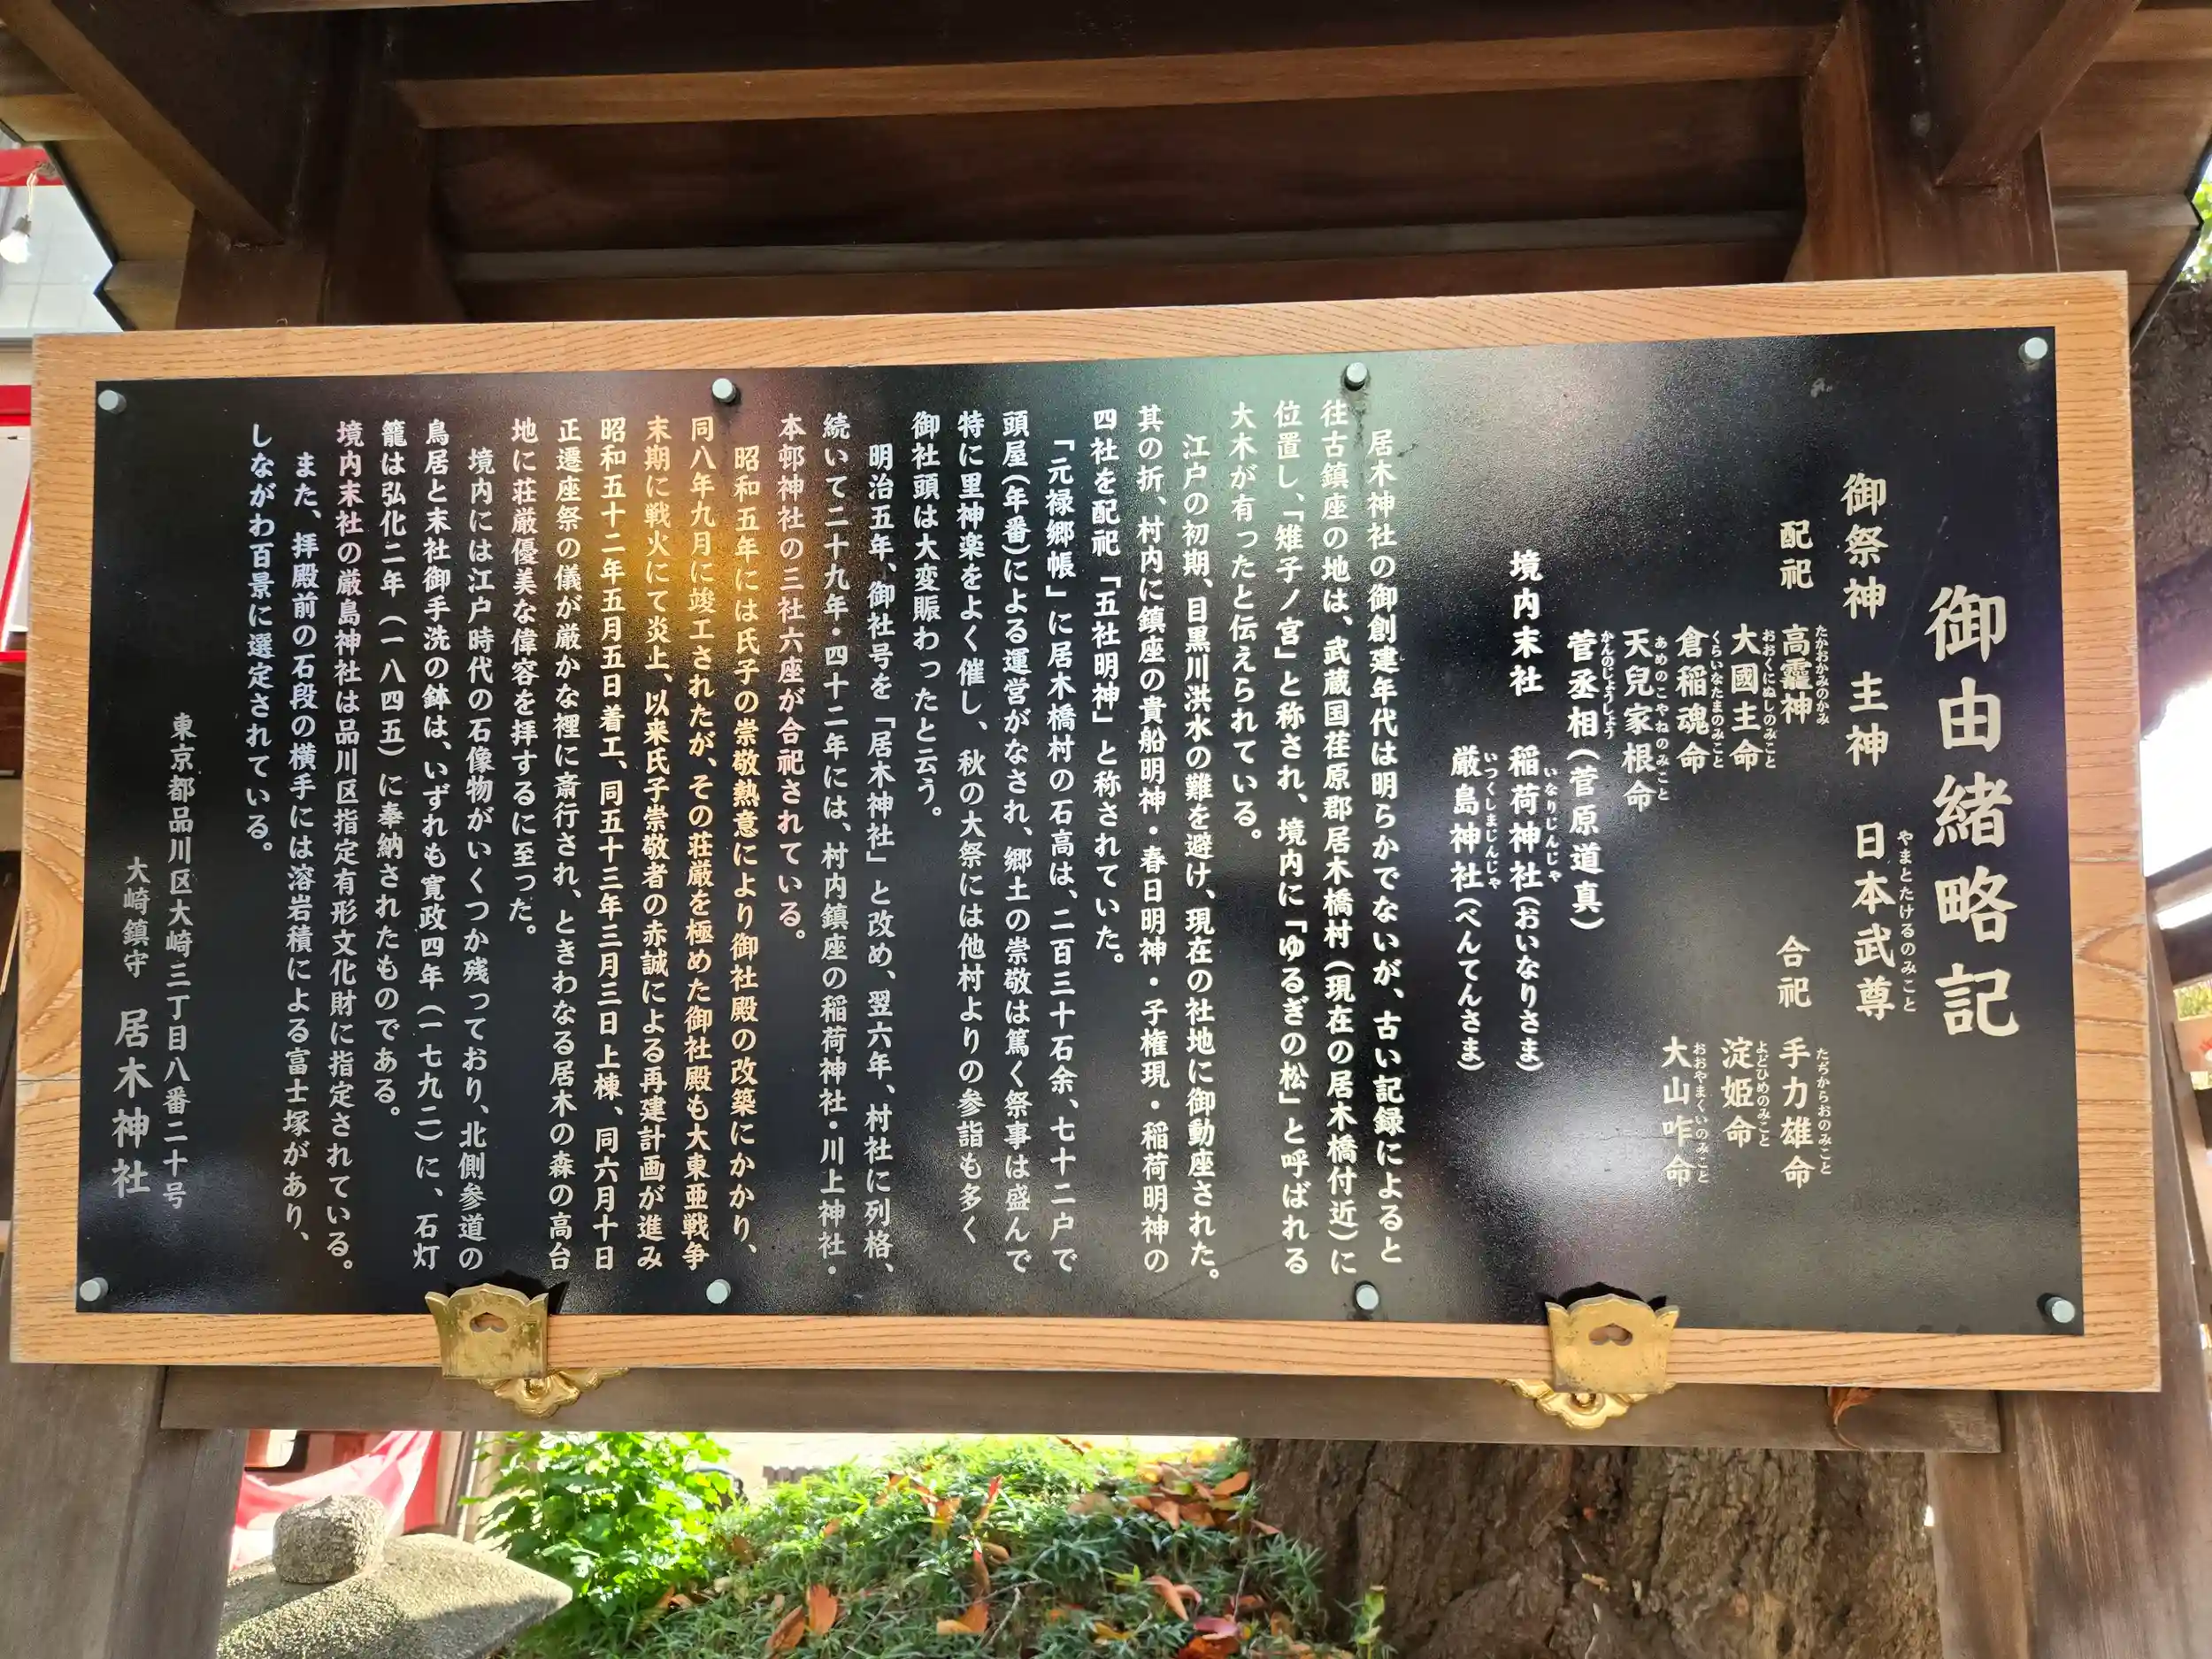 御由緒略記
御祭神 主神 日本武尊
やまとたけるのみこと
配祀 高龗神 合祀 手力雄命
たかおかみのかみ たぢからおのみこと
大國主命 淀姫命
おおくにぬしのみこと よどひめのみこと
倉稲魂命 大山咋命
くらいなたまのみこと おおやまくいのみこと
天兒家根命
あめのこやねのみこと
菅丞相(菅原道真)
かんのじょうしょう
境内末社 稲荷神社(おいなりさま)
いなりじんじゃ
厳島神社(べんてんさま)
いつくしまじんじゃ
居木神社の御創建年代は明らかでないが、古い記録によると
往古鎮座の地は、武蔵国荏原郡居木橋村(現在の居木橋付近)に
位置し、「雉子ノ宮」と称され、境内に「ゆるぎの松」と呼ばれる
大木が有ったと伝えられている。
江戸の初期、目黒川洪水の難を避け、現在の社地に御動座された。
其の折、村内に鎮座の貴船明神・春日明神・子権現・稲荷明神の
四社を配祀「五社明神」と称されていた。
「元禄郷帳」に居木橋村の石高は、二百三十石余、七十二戸で
頭屋(年番)による運営がなされ、郷土の崇敬は篤く祭事は盛んで
特に里神楽をよく催し、秋の大祭には他村よりの参詣も多く
御社頭は大変賑わったと云う。
明治五年、御社号を「居木神社」と改め、翌六年、村社に列格、
続いて二十九年・四十二年には、村内鎮座の稲荷神社・川上神社・
本邨神社の三社六座が合祀されている。
昭和五年には氏子の崇敬熱意により御社殿の改築にかかり、
同八年九月に竣工されたが、その荘厳を極めた御社殿も大東亜戦争
末期に戦火にて炎上、以来氏子崇敬者の赤誠による再建計画が進み
昭和五十二年五月五日着工、同五十三年三月三日上棟、同六月十日
正遷座祭の儀が厳かな裡に斎行され、ときわなる居木の森の高台
地に荘厳優美な偉容を拝するに至った。
境内には江戸時代の石像物がいくつか残っており、北側参道の
鳥居と末社御手洗の鉢は、いずれも寛政四年(一七九二)に、石灯
籠は弘化二年(一八四五)に奉納されたものである。
境内末社の厳島神社は品川区指定有形文化財に指定されている。
また、拝殿前の石段の横手には溶岩積による富士塚があり、
しながわ百景に選定されている。
東京都品川区大崎三丁目八番二十号
大崎鎮守 居木神社